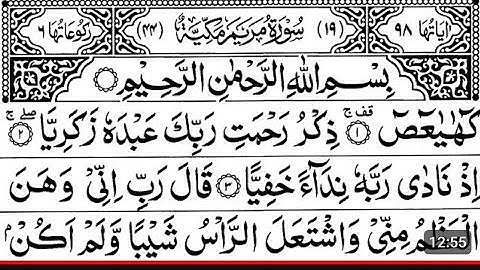 اٰیَاتُهَا ٩٨ (١٩) سُوْرَةُ مَرْیَمَ مَكِّیَّةٌ (٤٤) رُكُوْعَاتُهَا ٦
بِسْمِ اللهِ الرَّحْمٰنِ الرَّحِیْمِ
كٓهٰیٰعٓصٓ ۚ قف ١ ذِكْرُ رَحْمَتِ رَبِّكَ عَبْدَهٗ زَكَرِیَّا ۖۚ صلے ٢
اِذْ نَادٰی رَبَّهٗ نِدَآءً خَفِیًّا ٣ قَالَ رَبِّ اِنِّیْ وَهَنَ
الْعَظْمُ مِنِّیْ وَاشْتَعَلَ الرَّاْسُ شَیْبًا وَّلَمْ اَكُنْۢ
12:55